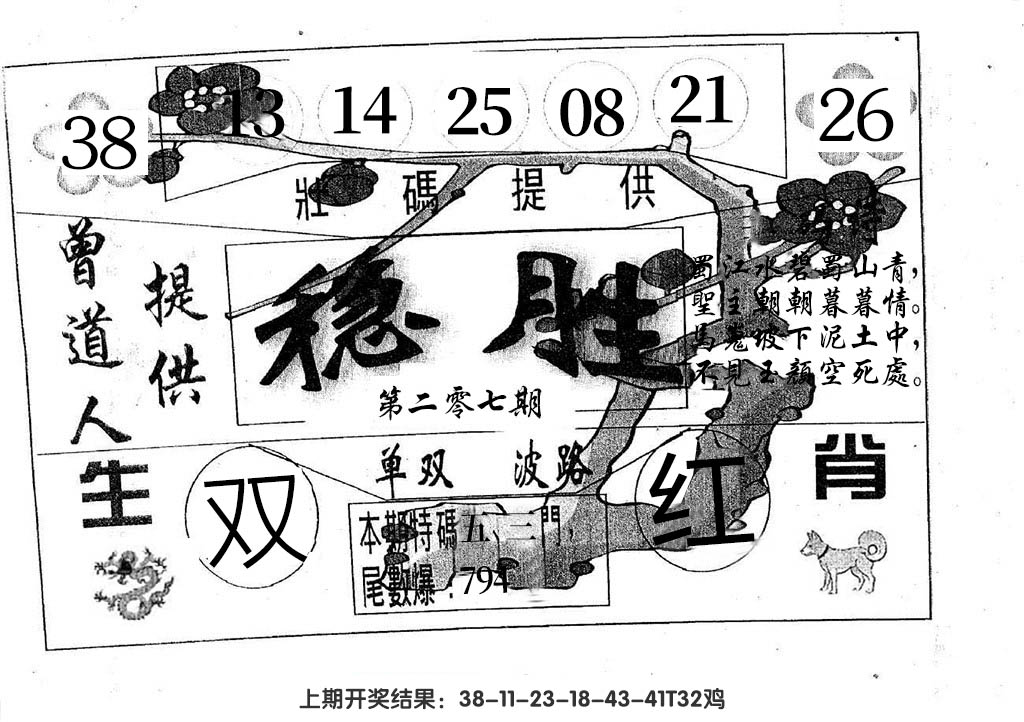 38 13 14 25 08 21 26
壯碼提供
特
曾道人
提供
稳胜
第二零七期
蜀江水碧蜀山青，
聖主朝朝暮暮情。
馬嵬坡下泥土中，
不見玉顏空死處。
单双 波路
生肖
双
红
本期特碼五、三門，
尾數爆：794
上期开奖结果：38-11-23-18-43-41T32鸡